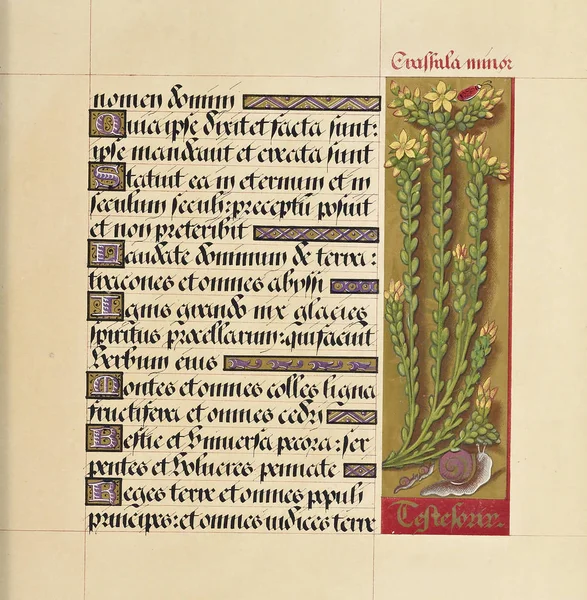 Crassula minor
nomen domini
Quia ipse dixit et facta sunt:
ipse mandauit et creata sunt
Statuit ea in eternum et in
seculum seculi: preceptū posuit
et non preteribit
Laudate dominum de terra:
dracones et omnes abyssi
Ignis grando nix glacies
spiritus procellarum: qui faciunt
verbum eius
Montes et omnes colles ligna
fructifera et omnes cedri
Bestie et vniuersa pecora: ser
pentes et volucres pennate
Reges terre et omnes populi
principes: et omnes iudices terre